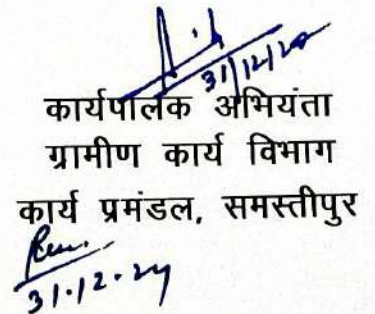 31/12/24
कार्यपालक अभियंता
ग्रामीण कार्य विभाग
कार्य प्रमंडल, समस्तीपुर
31.12.24